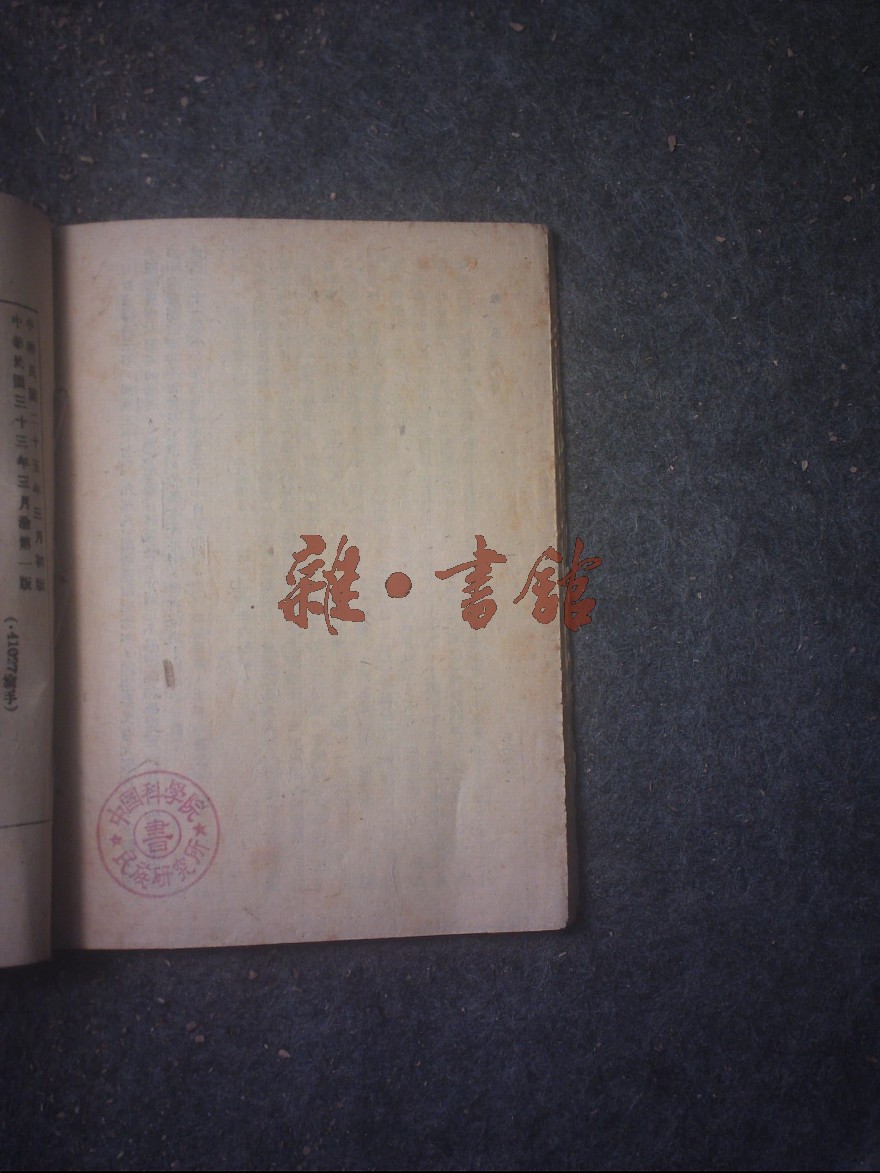 中華民國二十五年三月初版
中華民國三十三年三月渝第一版
雜·書館
中國科学院
書
民族研究所